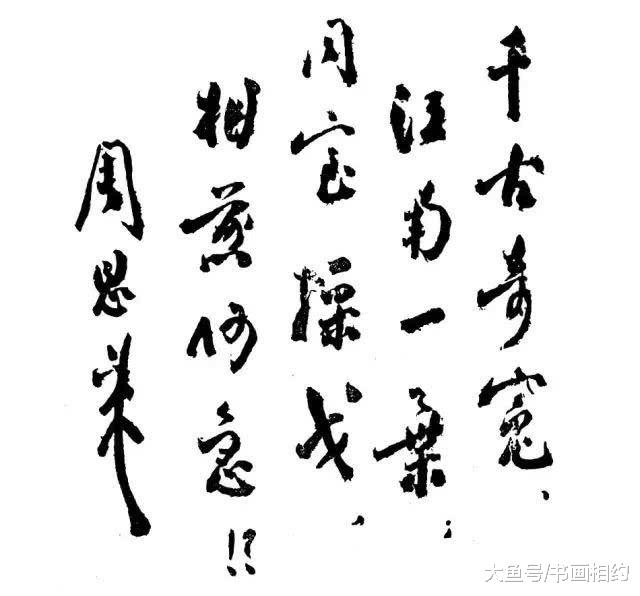 千古奇冤、
江南一葉；
同室操戈，
相煎何急！！
周恩来
大鱼号/书画相约